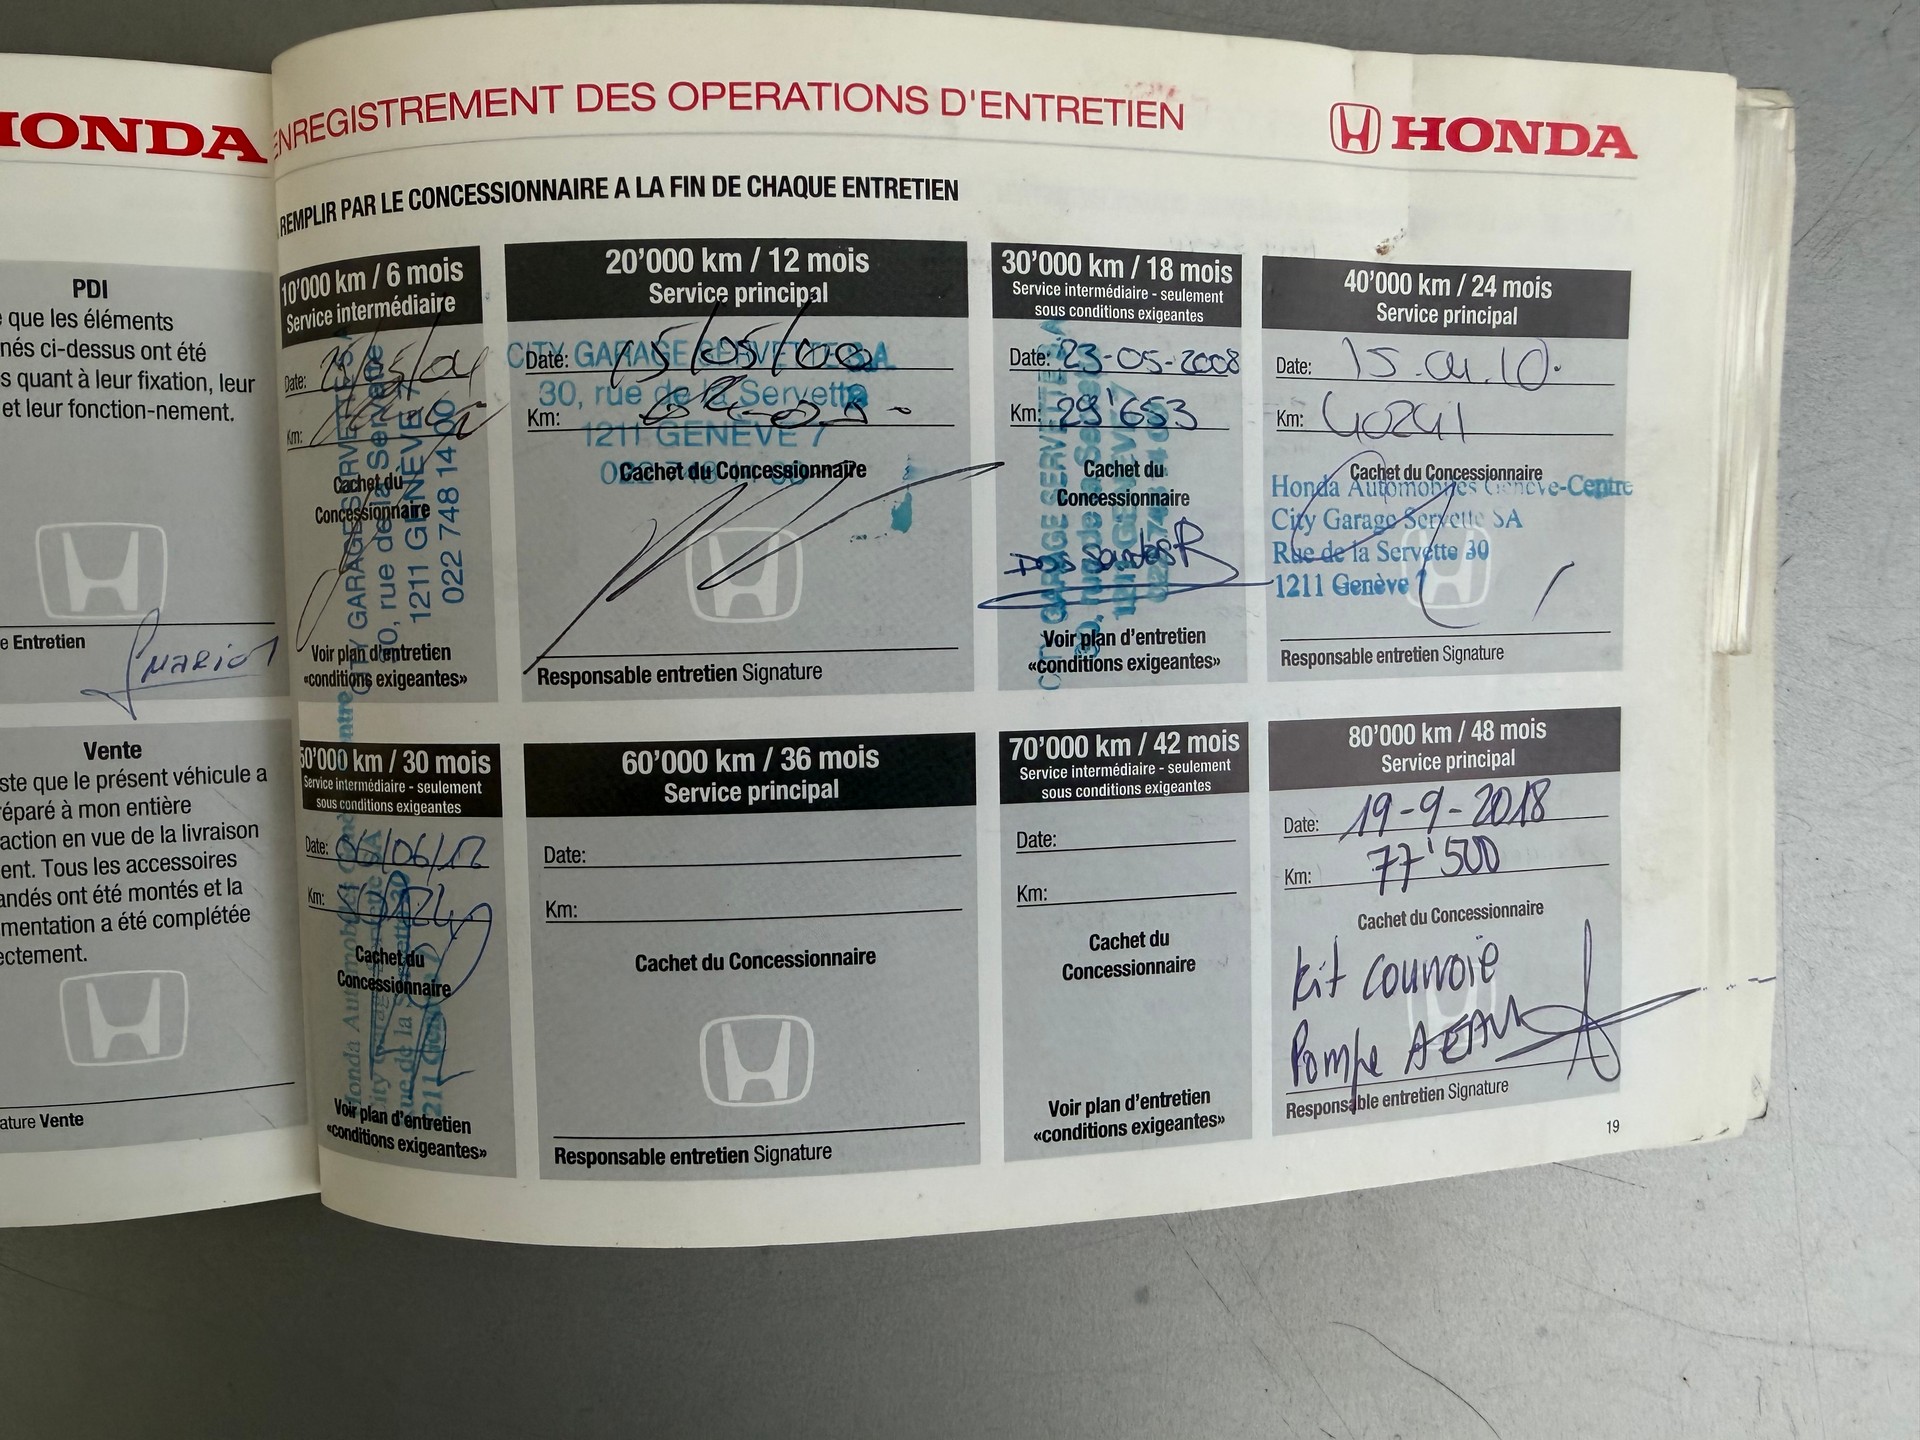 HONDA
PDI
que les éléments
nés ci-dessus ont été
s quant à leur fixation, leur
et leur fonction-nement.
e Entretien
Vente
ste que le présent véhicule a
réparé à mon entière
action en vue de la livraison
ent. Tous les accessoires
andés ont été montés et la
mentation a été complétée
ectement.
ature Vente
ENREGISTREMENT DES OPERATIONS D'ENTRETIEN
HONDA
REMPLIR PAR LE CONCESSIONNAIRE A LA FIN DE CHAQUE ENTRETIEN
10'000 km / 6 mois
Service intermédiaire
Date:
Km:
Cachet du
Concessionnaire
CITY GARAGE SERVETTE SA
30, rue de la Servette
1211 GENÈVE 7
022 748 14 00
Voir plan d'entretien
«conditions exigeantes»
20'000 km / 12 mois
Service principal
Date:
Km:
CITY GARAGE SERVETTE SA
30, rue de la Servette
1211 GENÈVE 7
Cachet du Concessionnaire
Responsable entretien Signature
30'000 km / 18 mois
Service intermédiaire - seulement
sous conditions exigeantes
Date: 23-05-2008
Km: 29'653
Cachet du
Concessionnaire
Voir plan d'entretien
«conditions exigeantes»
40'000 km / 24 mois
Service principal
Date: 15.01.10.
Km: 40241
Cachet du Concessionnaire
Honda Automobiles Genève-Centre
City Garage Servette SA
Rue de la Servette 30
1211 Genève 7
Responsable entretien Signature
50'000 km / 30 mois
Service intermédiaire - seulement
sous conditions exigeantes
Date: 06/06/12
Km:
Cachet du
Concessionnaire
Voir plan d'entretien
«conditions exigeantes»
60'000 km / 36 mois
Service principal
Date:
Km:
Cachet du Concessionnaire
Responsable entretien Signature
70'000 km / 42 mois
Service intermédiaire - seulement
sous conditions exigeantes
Date:
Km:
Cachet du
Concessionnaire
Voir plan d'entretien
«conditions exigeantes»
80'000 km / 48 mois
Service principal
Date: 19-9-2018
Km: 77'500
Cachet du Concessionnaire
Kit courroie
Pompe A EAU
Responsable entretien Signature
19